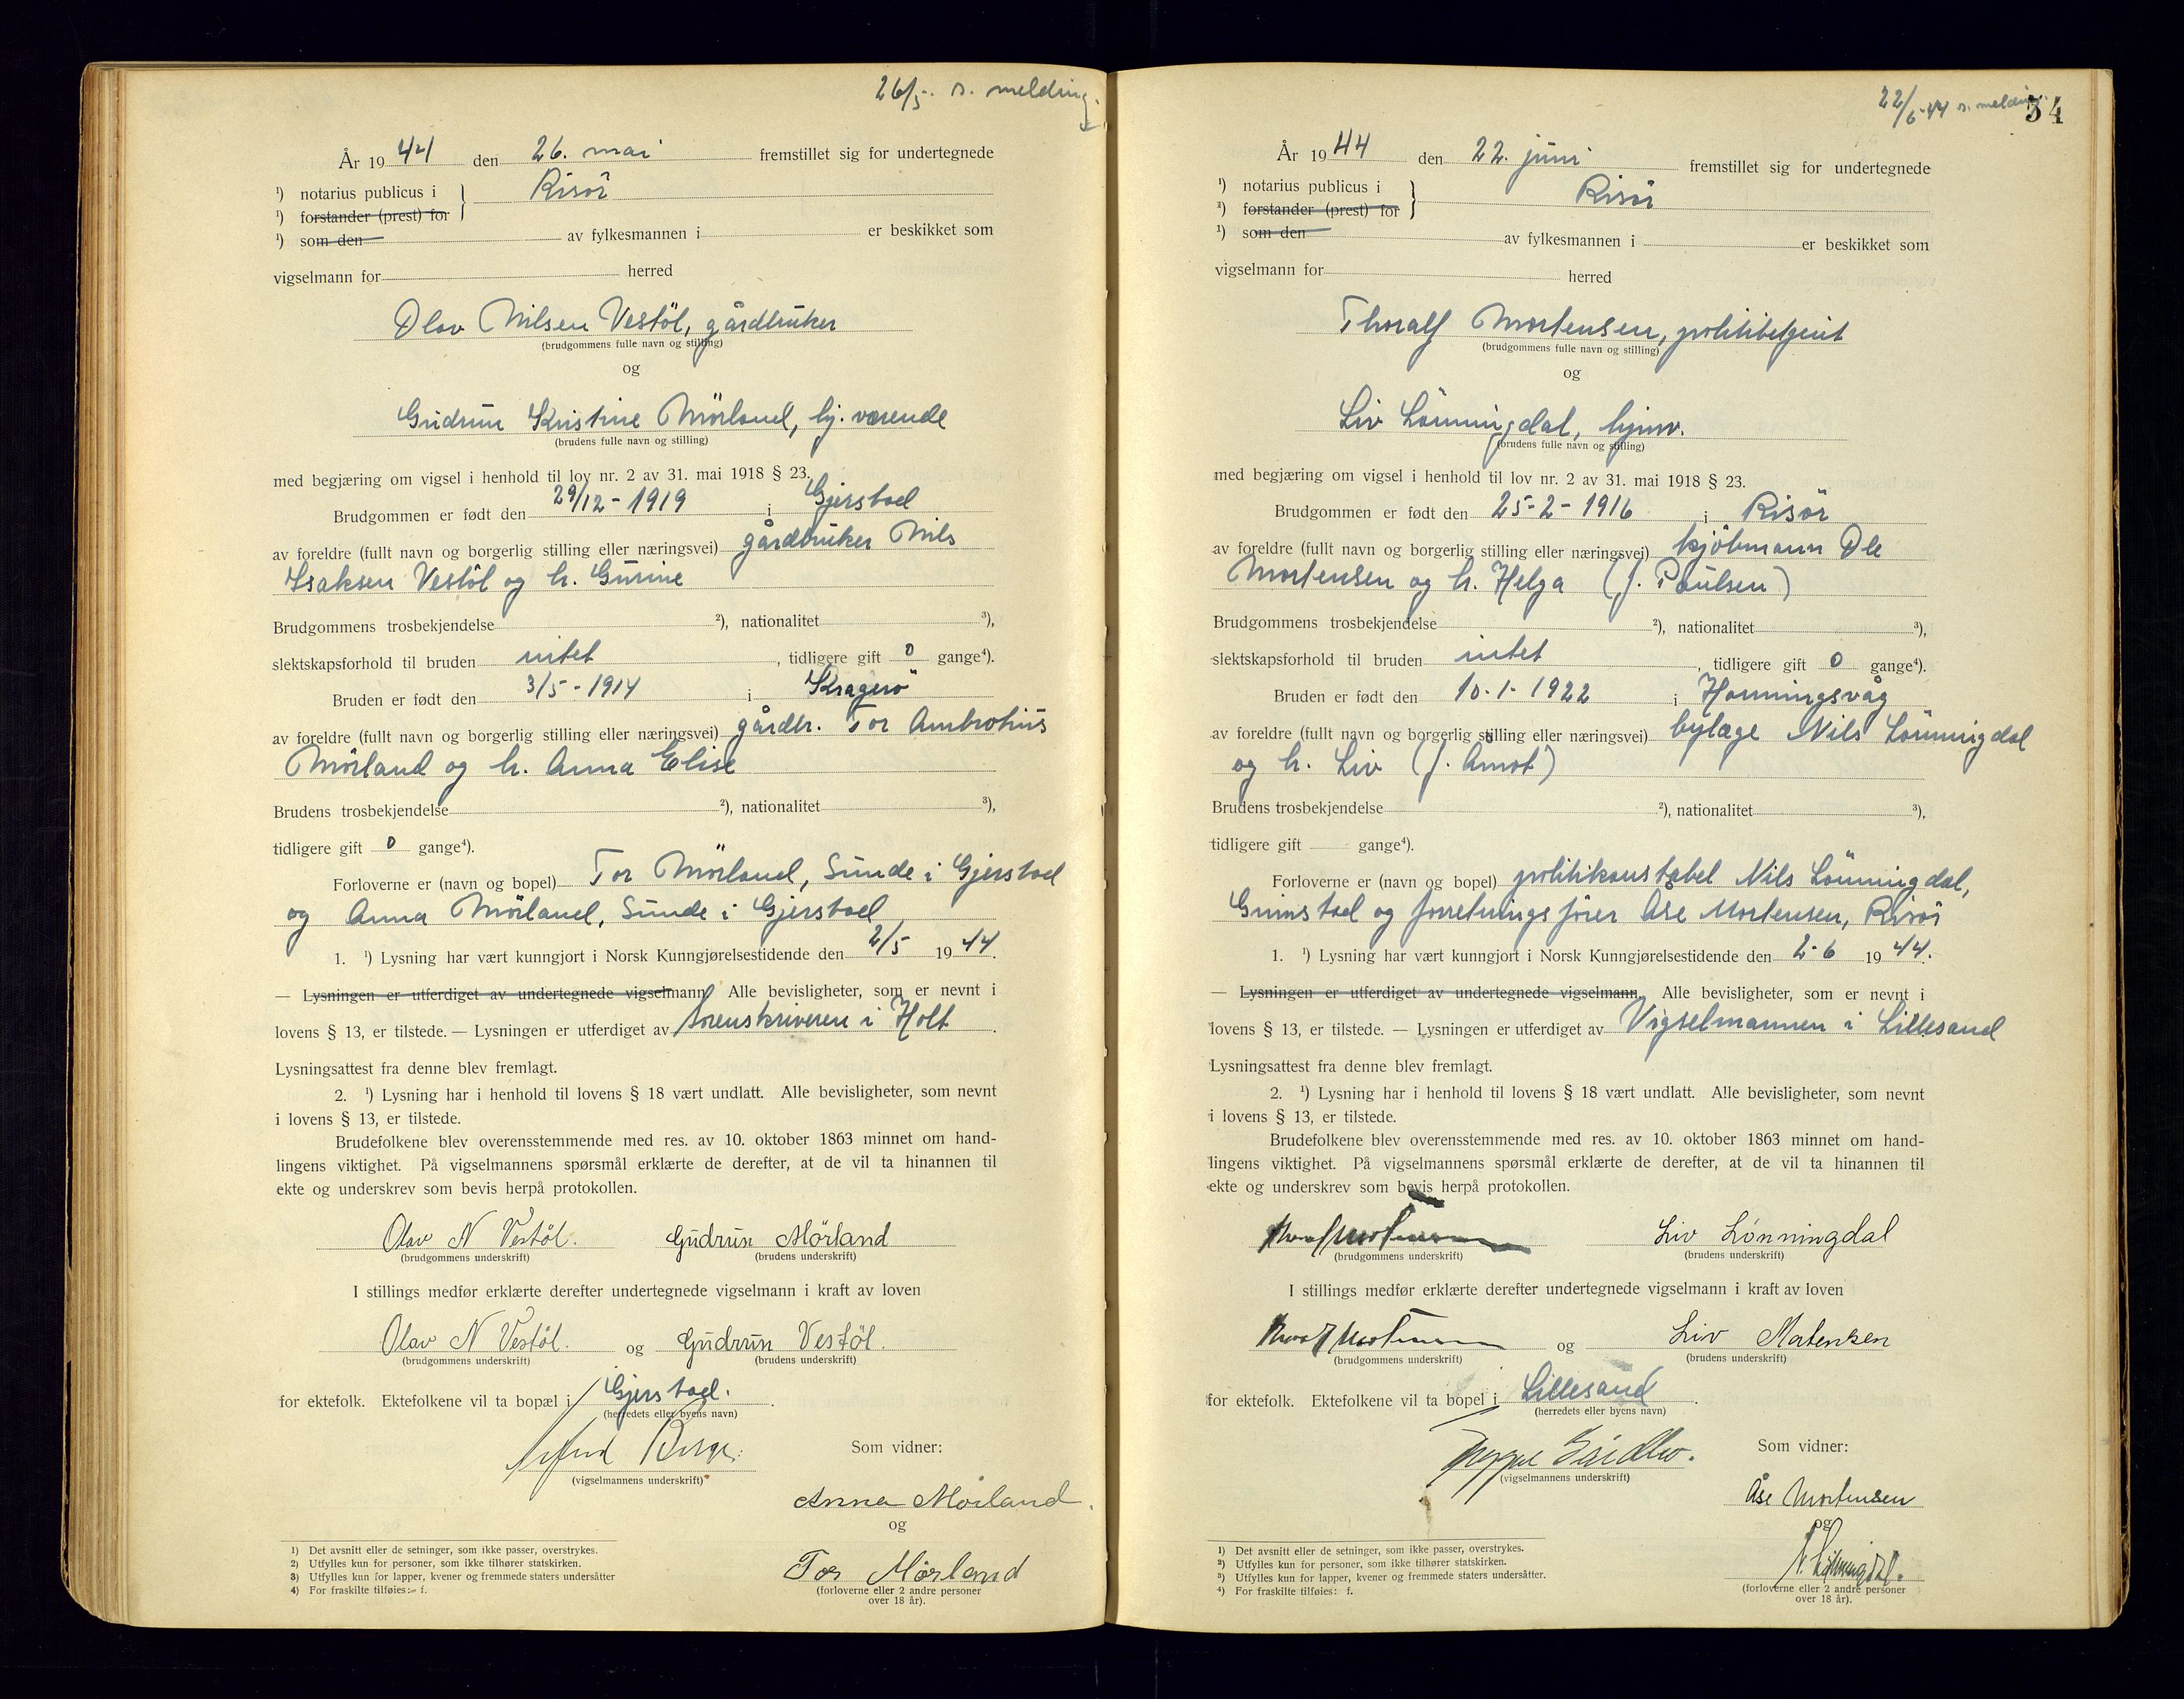 26/5. s. melding.
År 1944 den 26. mai fremstillet sig for undertegnede
¹) notarius publicus i } Risör
¹) forstander (prest) for
¹) som den av fylkesmannen i er beskikket som
vigselmann for herred
Olav Nilsen Vestöl, gårdbruker
(brudgommens fulle navn og stilling)
og
Gudrun Kristine Mörland, hj. værende
(brudens fulle navn og stilling)
med begjæring om vigsel i henhold til lov nr. 2 av 31. mai 1918 § 23.
Brudgommen er født den 29/12 - 1919 i Gjerstad
av foreldre (fullt navn og borgerlig stilling eller næringsvei) gårdbruker Nils
Isaksen Vestöl og h. Gurine
Brudgommens trosbekjendelse ²), nationalitet ³),
slektskapsforhold til bruden intet , tidligere gift 0 gange⁴).
Bruden er født den 3/5 - 1914 i Kragerö
av foreldre (fullt navn og borgerlig stilling eller næringsvei) gårdbr. Tor Ambrotius
Mörland og h. Anna Elise
Brudens trosbekjendelse ²), nationalitet ³),
tidligere gift 0 gange⁴).
Forloverne er (navn og bopel) Tor Mörland, Sunde i Gjerstad
og Anna Mörland, Sunde i Gjerstad
1. ¹) Lysning har vært kunngjort i Norsk Kunngjørelsestidende den 2/5 1944.
— Lysningen er utferdiget av undertegnede vigselmann. Alle bevisligheter, som er nevnt i
lovens § 13, er tilstede. — Lysningen er utferdiget av Sorenskriveren i Holt .
Lysningsattest fra denne blev fremlagt.
2. ¹) Lysning har i henhold til lovens § 18 vært undlatt. Alle bevisligheter, som nevnt
i lovens § 13, er tilstede.
Brudefolkene blev overensstemmende med res. av 10. oktober 1863 minnet om hand-
lingens viktighet. På vigselmannens spørsmål erklærte de derefter, at de vil ta hinannen til
ekte og underskrev som bevis herpå protokollen.
Olav N Vestöl. Gudrun Mörland
(brudgommens underskrift) (brudens underskrift)
I stillings medfør erklærte derefter undertegnede vigselmann i kraft av loven
Olav N Vestöl. og Gudrun Vestöl.
(brudgommens underskrift) (brudens underskrift)
for ektefolk. Ektefolkene vil ta bopæl i Gjerstad.
(herredets eller byens navn)
Berge
(vigselmannens underskrift)
Som vidner:
Anna Mörland.
og
Tor Mörland
(forloverne eller 2 andre personer
over 18 år).
1) Det avsnitt eller de setninger, som ikke passer, overstrykes.
2) Utfylles kun for personer, som ikke tilhører statskirken.
3) Utfylles kun for lapper, kvener og fremmede staters undersåtter
4) For fraskilte tilføies:- f.
22/6-44 s. melding.
34
År 1944 den 22. juni fremstillet sig for undertegnede
¹) notarius publicus i } Risör
²) forstander (prest) for
¹) som den av fylkesmannen i er beskikket som
vigselmann for herred
Thoralf Mortensen, politibetjent
(brudgommens fulle navn og stilling)
og
Liv Lönningdal, hjmv.
(brudens fulle navn og stilling)
med begjæring om vigsel i henhold til lov nr. 2 av 31. mai 1918 § 23.
Brudgommen er født den 25-2-1916 i Risör
av foreldre (fullt navn og borgerlig stilling eller næringsvei) kjöbmann Ole
Mortensen og h. Helga (f. Paulsen)
Brudgommens trosbekjendelse ²), nationalitet ³),
slektskapsforhold til bruden intet , tidligere gift 0 gange⁴).
Bruden er født den 10-1-1922 i Honningsvåg
av foreldre (fullt navn og borgerlig stilling eller næringsvei) bylæge Nils Lönningdal
og h. Liv (f. Amot)
Brudens trosbekjendelse ²), nationalitet ³),
tidligere gift gange⁴).
Forloverne er (navn og bopel) politikonstabel Nils Lönningdal,
Grimstad og forretningsfører Åse Mortensen, Risör
1. ¹) Lysning har vært kunngjort i Norsk Kunngjørelsestidende den 2-6 1944.
— Lysningen er utferdiget av undertegnede vigselmann. Alle bevisligheter, som er nevnt i
lovens § 13, er tilstede. — Lysningen er utferdiget av Vigselmannen i Lillesand
Lysningsattest fra denne blev fremlagt.
2. ¹) Lysning har i henhold til lovens § 18 vært undlatt. Alle bevisligheter, som nevnt
i lovens § 13, er tilstede.
Brudefolkene blev overensstemmende med res. av 10. oktober 1863 minnet om hand-
lingens viktighet. På vigselmannens spørsmål erklærte de derefter, at de vil ta hinannen til
ekte og underskrev som bevis herpå protokollen.
Thoralf Mortensen Liv Lönningdal
(brudgommens underskrift) (brudens underskrift)
I stillings medfør erklærte derefter undertegnede vigselmann i kraft av loven
Thoralf Mortensen og Liv Mortensen
(brudgommens underskrift) (brudens underskrift)
for ektefolk. Ektefolkene vil ta bopel i Lillesand .
(herredets eller byens navn)
(vigselmannens underskrift)
Som vidner:
Åse Mortensen
og
N. Lönningdal.
(forloverne eller 2 andre personer
over 18 år).
¹) Det avsnitt eller de setninger, som ikke passer, overstrykes.
²) Utfylles kun for personer, som ikke tilhører statskirken.
³) Utfylles kun for lapper, kvener og fremmede staters undersåtter.
⁴) For fraskilte tilføies: f.